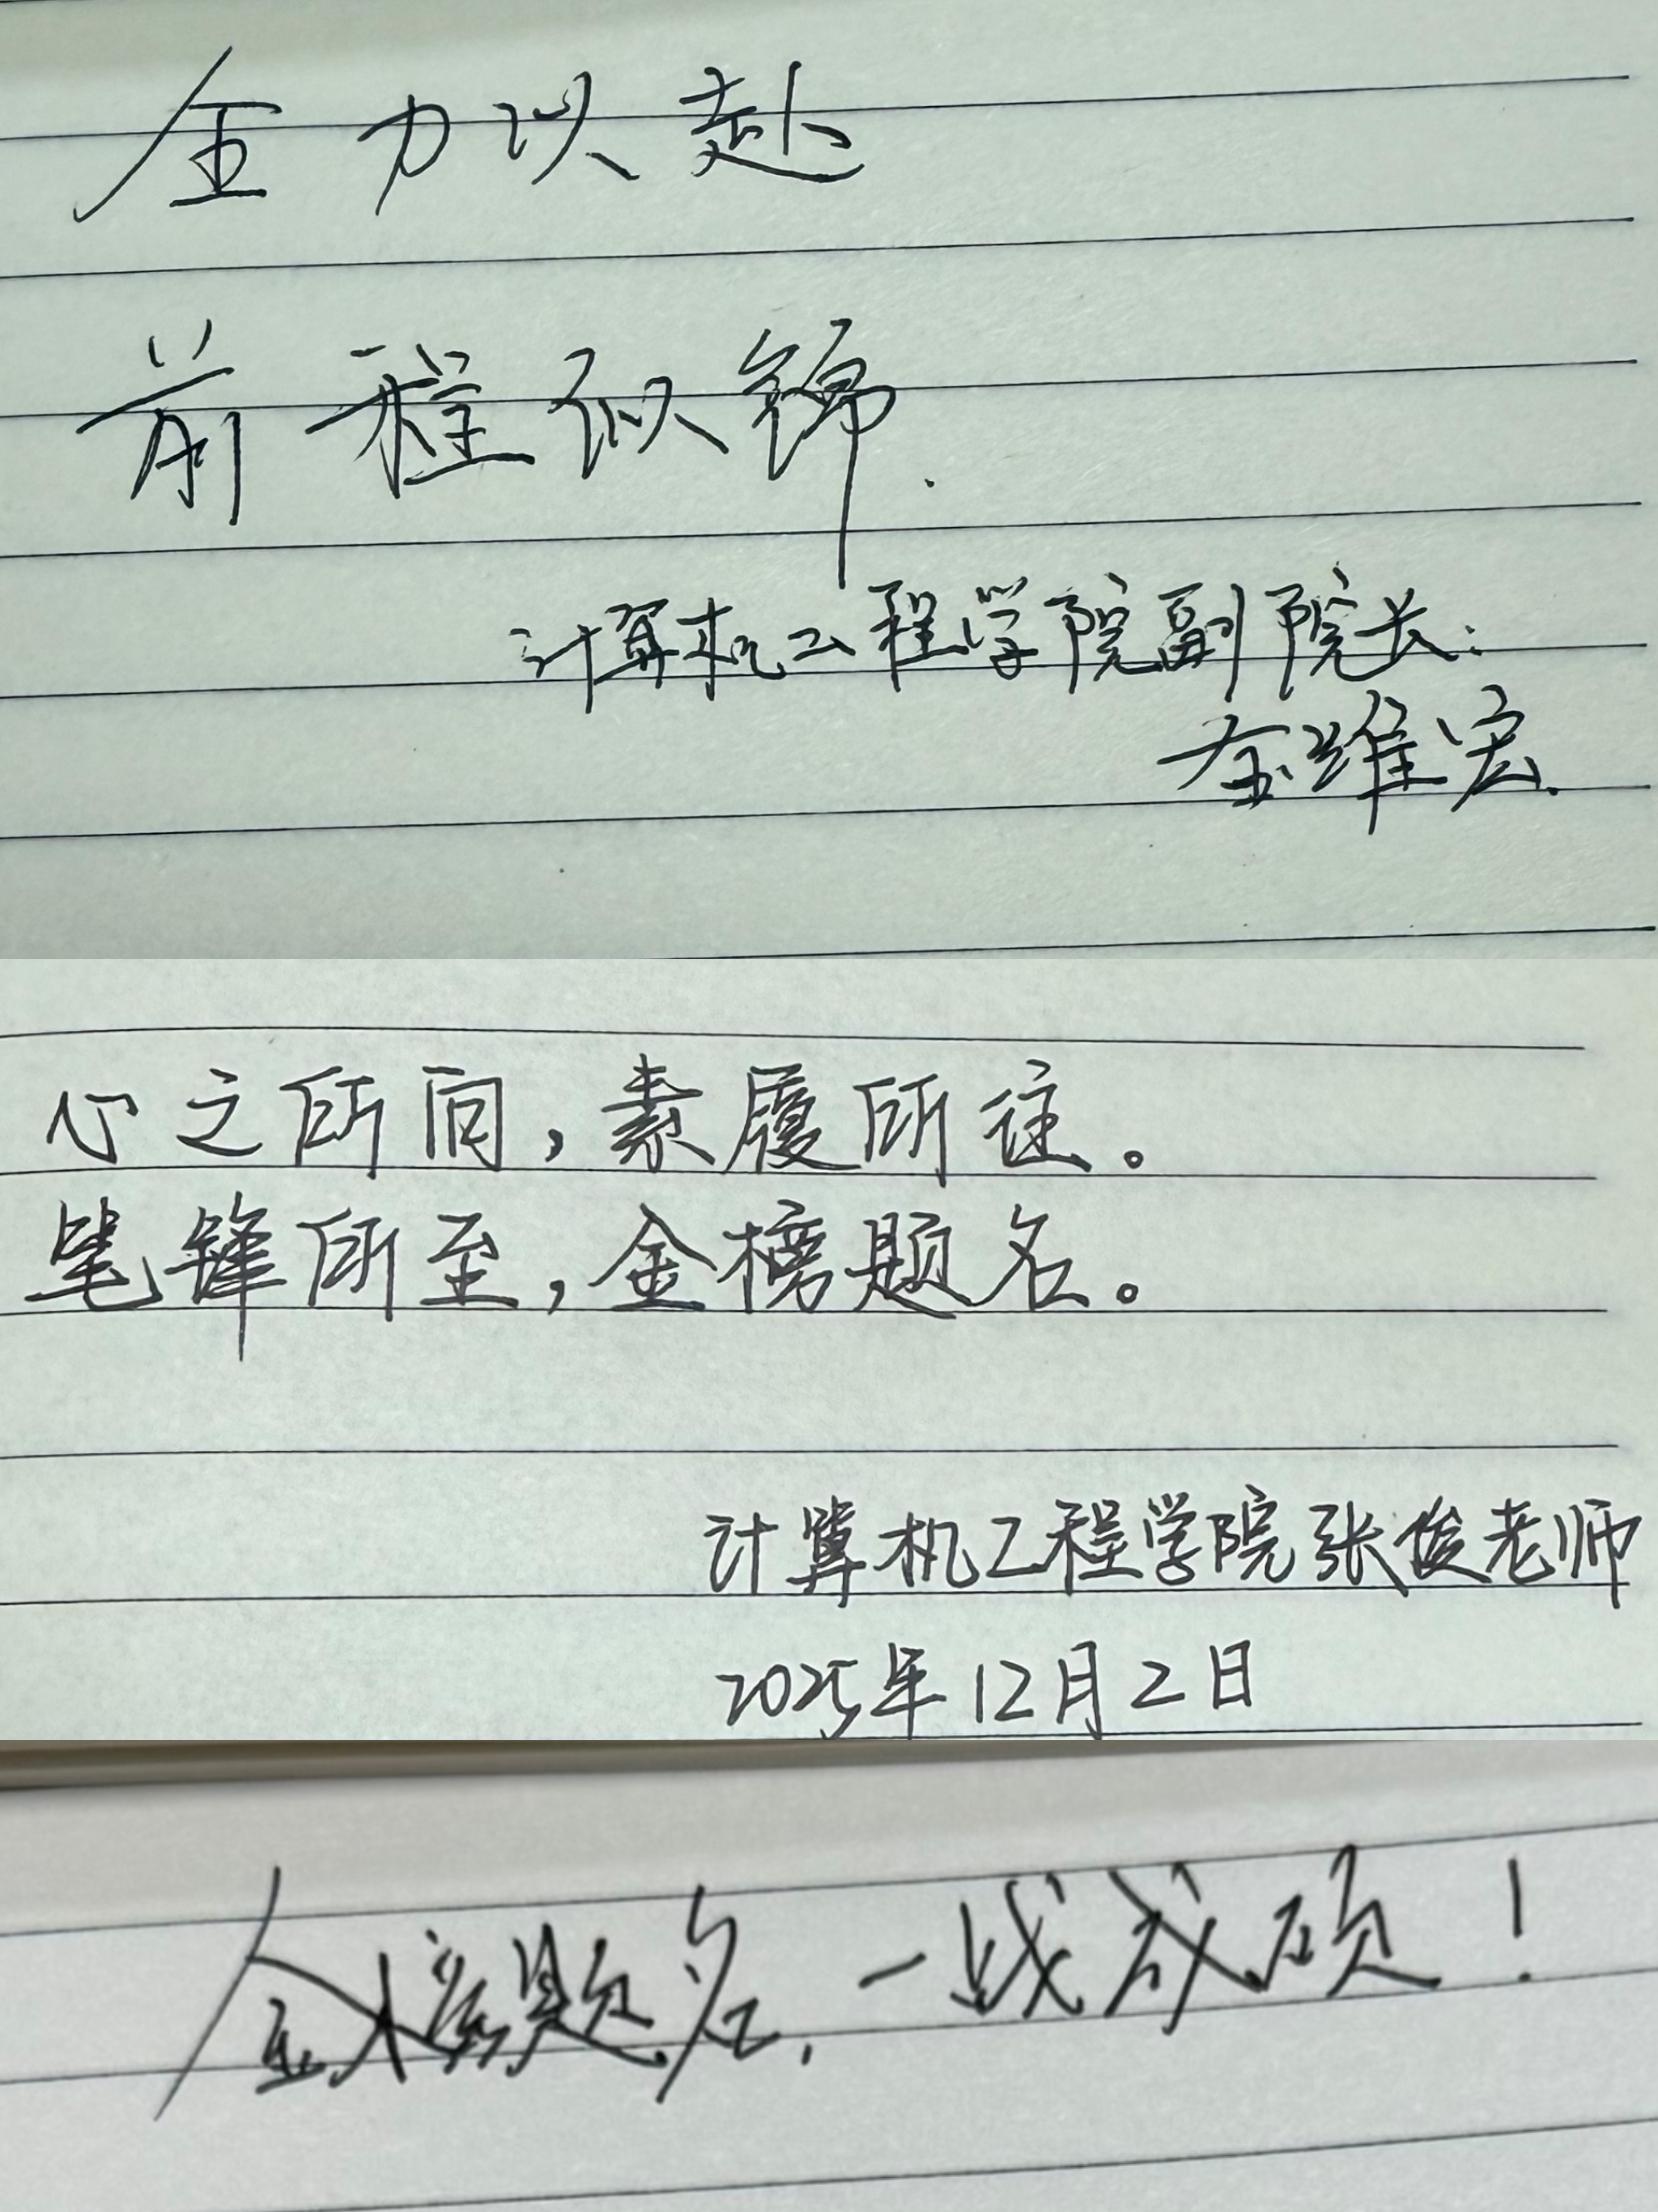 全力以赴
前程似锦.
计算机工程学院副院长:
金维宏.
心之所向,素履所往。
笔锋所至,金榜题名。
计算机工程学院张俊老师
2025年12月2日
金榜题名,一战成硕!